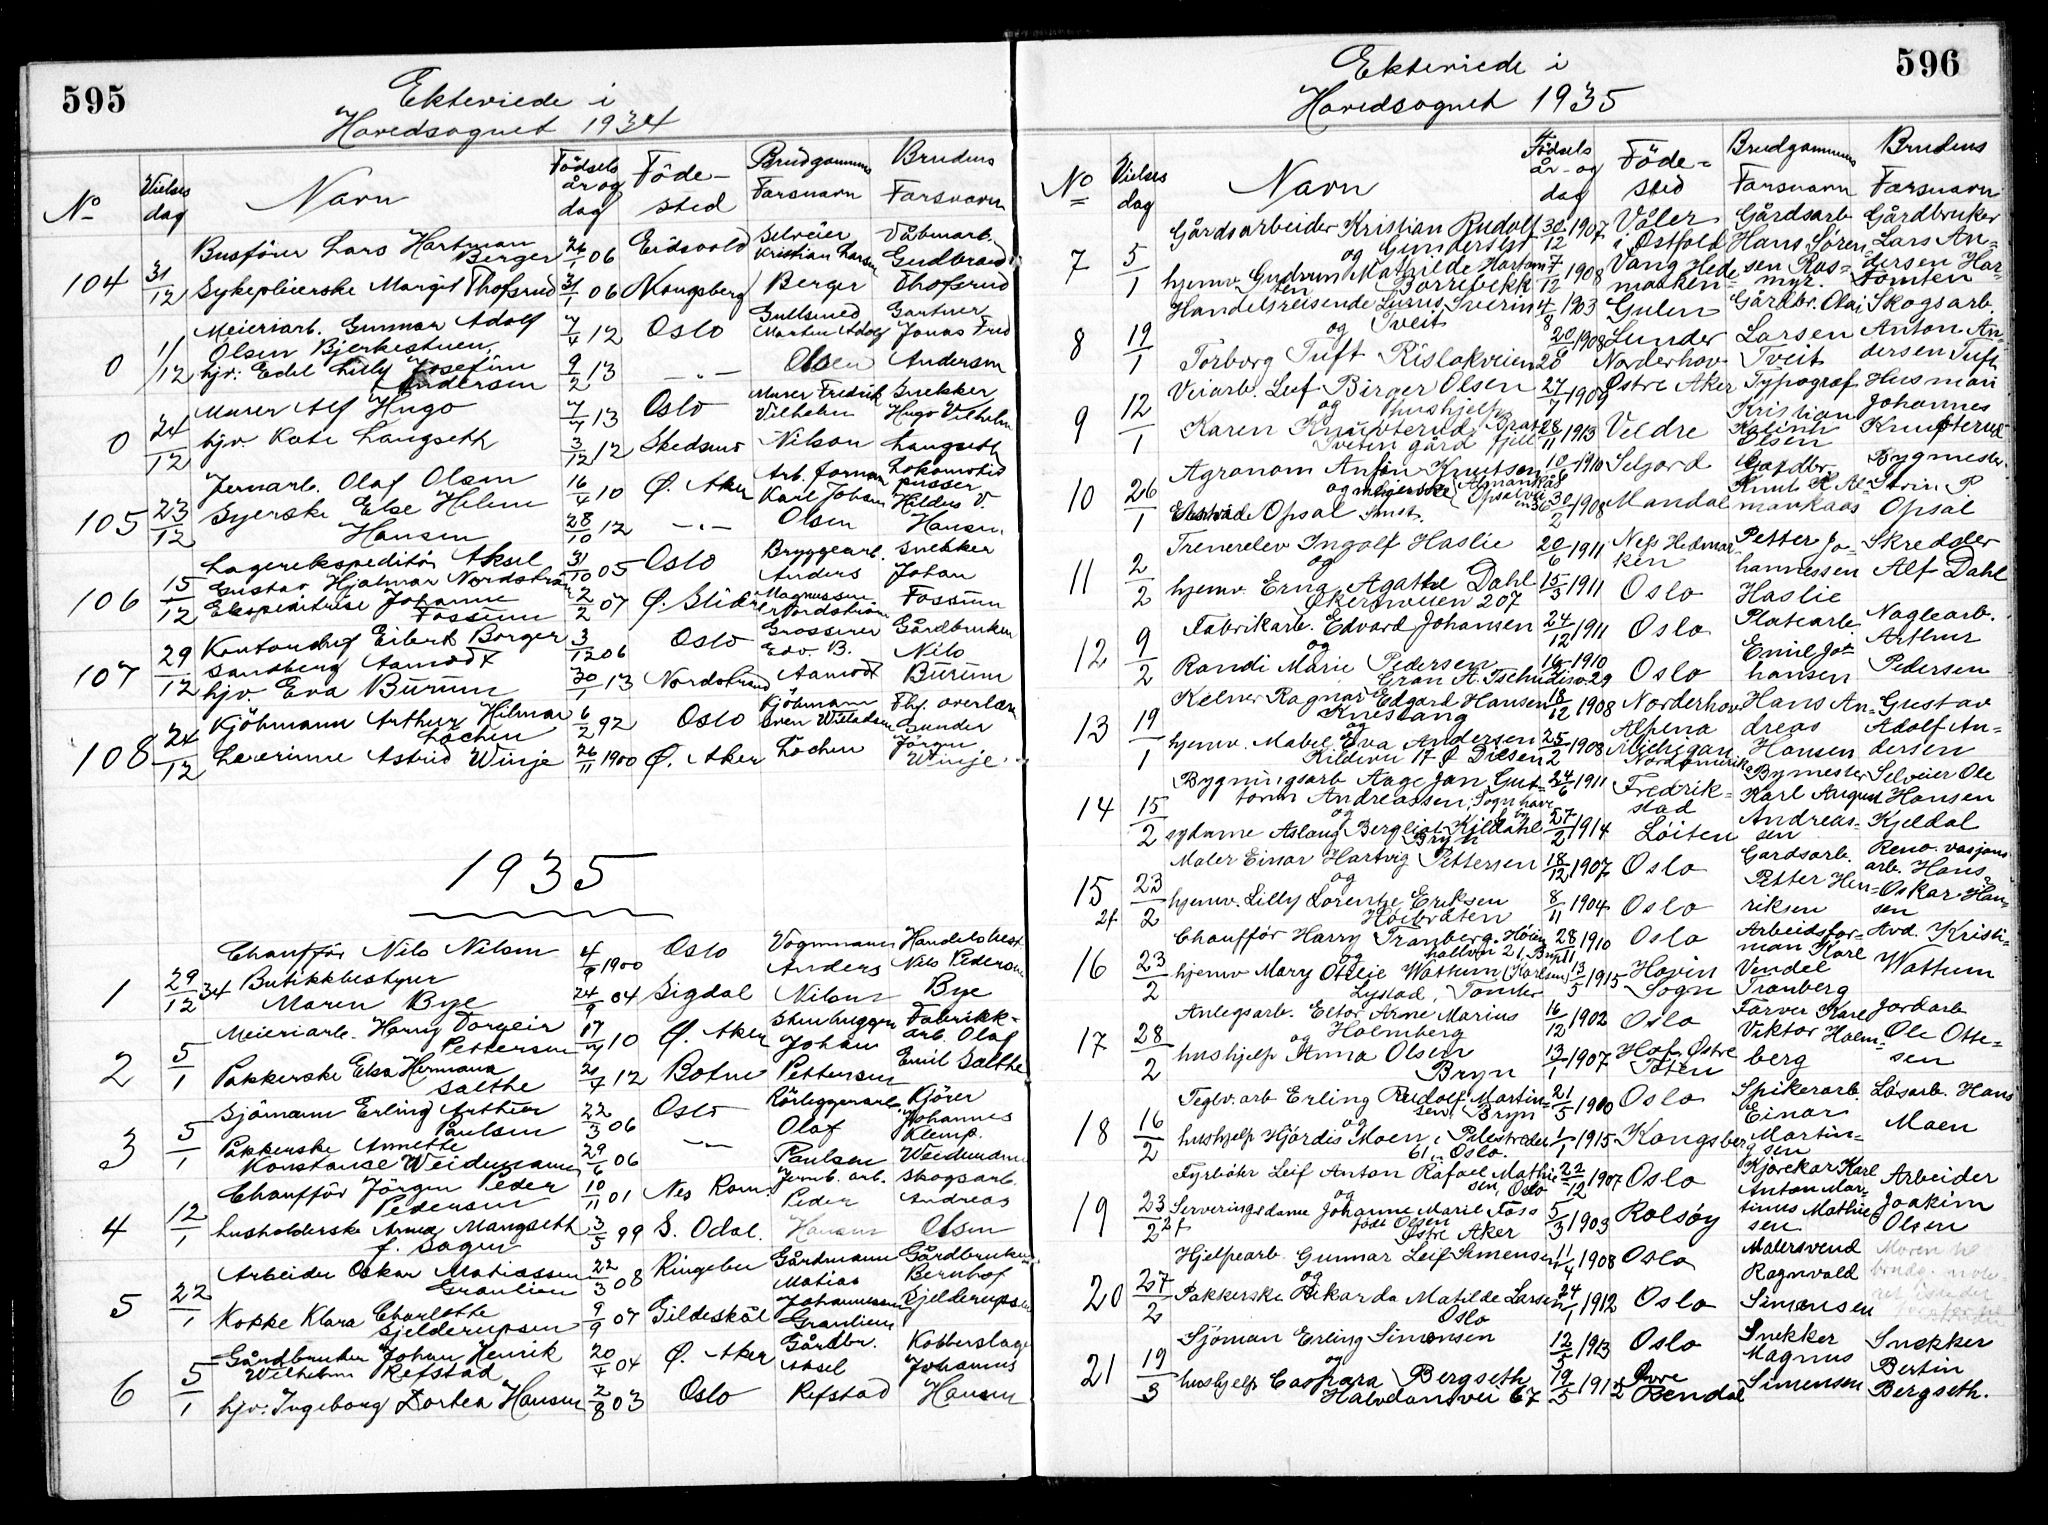 595
Ekteviede i
Hovedsognet 1934
No Vielses dag Navn Fødsels år og dag Føde-sted Brudgommens Farsnavn Brudens Farsnavn
104 31/12 Bussfører Lars Hartman Berger 26/1 06 Eidsvold Selveier Kristian Larsen Berger
Sykepleierske Margit Thofsrud 31/1 06 Kongsberg Gudbrand Thofsrud
0 1/12 Meieriarb. Gunnar Adolf Olsen Bjerkestuen 7/4 12 Oslo Gullsmed Martin Adolf Olsen
hjv. Edel Lilly Josefine Andersen 9/2 13 -"- Gartner Jonas Fred Andersen
0 24/12 Murer Alf Hugo 7/7 13 Oslo Murer Fredrik Vilhelm Nilson
hjv. Kate Langseth 3/12 12 Skedsmo Snekker Hugo Vilhelm Langseth
105 23/12 Jernarb. Olaf Olsen 16/4 10 Ø. Aker Arb. forman Karl Johan Olsen
Syerske Else Helene Hansen 28/10 12 -"- Lokomotiv pusser Hildus V. Hansen
106 15/12 Lagerekspeditør Aksel Gustav Hjalmar Nordstrøm 31/10 05 Oslo Bryggearb. Anders Magnussen Nordstrøm
Ekspeditrise Johanne Fossum 2/2 07 Ø. Slidre Snekker Johan Fossum
107 29/12 Kontorchef Eilert Borger Sandberg Aamodt 3/12 06 Oslo Grosserer Edv. B. Aamodt
hjv. Eva Burum 30/1 13 Nordstrand Gårdbruker Nils Burum
108 24/12 Kjøbmann Arthur Hilmar Lochen 6/2 92 Oslo Kjøbmann Lochen
Lærerinne Astrid Winje 26/11 1900 Ø. Aker Gunder Jørgen Winje
1935
1 29/12 34 Chauffør Nils Nilsen 4/9 1900 Oslo Vognmann Anders Nilsen
Butikkbestyrer Maren Bye 24/9 04 Sigdal Handelsbest. Nils Pedersen Bye
2 5/1 Meieriarb. Harry Torgeir Pettersen 10 Ø. Aker Stenhugger Johan Pettersen
Pakkerske Elsa Hermana Salthe 7 12 Botne Fabrikk-arb. Olaf Emil Salthe
3 5/1 Sjömann Erling Arthur Paulsen 22/3 06 Oslo Rörleggerarb. Olaf Paulsen
Pakkerske Annette Konstanse Weidemann 29/6 06 -"- Kjörer Johannes Klemp. Weidemann
4 12/1 Chauffør Jörgen Peder Pedersen 10/11 01 Nes Rom. Jernb. arb. Peder Hansen
husholderske Anna Mangseth f. Sagen 3/5 99 S. Odal. Skogsarb. Andreas Olsen
5 22/1 Arbeider Oskar Matiassen Granlien 22/3 08 Ringebu Gårdmann Matias Johannessen Granlien
Kokke Klara Charlotte Gjelderupsen 9/9 07 Gildeskål Gårdbruker Bernhof Gjelderupsen
6 5/1 Gårdbruker Johan Henrik Wilhelm Refstad 20/4 04 Ø. Aker Gårdbr. Aksel Refstad
hjv. Ingeborg Dortea Hansen 2/8 03 Oslo Kobberslager Johannes Hansen
596
Ekteviede i
Hovedsognet 1935
No Vielses dag Navn Fødsels år- og dag Føde-sted Brudgommens Farsnavn Brudens Farsnavn
7 5/1 Gårdsarbeider Kristian Rudolf Gundersen 30/12 1907 Våler i Østfold Gårdsarb Hans Søren-sen Ras-myr.
og hjemv. Gudrun Mathilde Borrebekk 7/12 1908 Vang Hede-marken Gårdbruker Lars An-dersen Har- Tomten
8 19/1 Handelsreisende Severin Tveit 4/8 1903 Gulen Gårdbr. Olai Larsen Tveit
og Torborg Tuft Rislokveien 28 20/ 1908 Lunder Norderhov Skogsarb. Anton An-dersen Tuft
9 12/1 Veiarb. Leif Birger Olsen 27/7 1909 Østre Aker Typograf Kristian Olsen
og hushjelp Karen Knupterud Tveten gård 28/11 1913 Veldre Husmann Johannes Knupterud
10 26/1 Agronom Knutsen 10/8 1910 Seljord Gardbr. Knut K Al-mankaas
og meierske Opsal 30/2 1908 Mandal Bygmester Svein P Opsal
11 2/2 Trenerelev Ingolf Haslie 20/6 1911 Nes Hedmar-ken Petter Jo-hannessen Haslie
og hjemv. Erna Agathe Dahl Økernveien 207 15/3 1911 Oslo Skredder Alf Dahl
12 9/2 Fabrikarb. Edvard Johansen 24/12 1911 Oslo Platearb. Emil Jo-hansen
og Randi Marie Pedersen Gran A. Tschudisv 29 16/ 1910 Oslo Naglearb. Arthur Pedersen
13 19/1 Kelner Ragnar Edgard Hansen Knestang 18/12 1908 Norderhov Hans An-dreas Hansen
og hjemv. Mabel Eva Andersen Kildevn 17 Ø Dilsen 25/2 1908 Alpena Michegan Nordamerika Gustav Adolf An-dersen
14 15/2 Bygningsarb Aage Jan Gut-torm Andreassen, Sogn haveby 24/6 1911 Fredrik-stad Bymester Karl August Andreas-sen
og sydame Aslaug Bergliot Kjeldahl Bryn 27/2 1914 Løiten Selveier Ole Hansen Kjeldal
15 23/2 Maler Einar Hartvig Pettersen 18/12 1907 Oslo Gardsarb. Petter Hen-riksen
2f og hjemv. Lilly Lorentze Eriksen Høibråten 8/11 1904 Oslo Reno-vasjons arb. Hans Oskar Han-sen
16 23/2 Chauffør Harry Tranberg. 21, Bryn 28/11 1910 Oslo Arbeidsfor-man Karl Vendel Tranberg
og hjemv Mary Otelie Wattum (Karlsen) Lystad, Tomter 13/5 1915 Hovin Sogn Avd. Kristi- Wattum
17 28/2 Anlegsarb. Eltor Arne Marius Holmberg 16/12 1902 Oslo Farver Karl Viktor Holm-berg
og hushjelp Anna Olsen Bryn 13/1 1907 Hof Østre Toten Jordarb Ole Otte-sen
18 16/2 Teglv. arb Erling Rudolf Martin-sen, Bryn 21/5 1900 Oslo Spikerarb. Einar Martin-sen
og hushjelp Hjördis Moen, Pilestredet 61, Oslo. 1/1 1915 Kongsberg Løsarb. Hans Moen
19 23/2 Fyrbøter Leif Anton Rafael Mathi-sen, Oslo 22/12 1907 Oslo Kjørekar Karl Anton Mar-tinus Mathi-sen
2f og Serveringsdame Johanne Marie Foss født Olsen Østre Aker 5/3 1903 Rolsøy Arbeider Joakim Olsen
20 27/2 Hjelpearb. Gunnar Leif Simensen 11/4 1908 Oslo Malersvend Ragnvald Simensen
og Pakkerske Rikarda Matilde Larsen Oslo 24/1 1912 Oslo
21 19/3 Sjöman Erling Simensen 12/5 1913 Oslo Snekker Magnus Simensen
og hushjelp Caspara Bergseth Halvdansvei 67 19/5 1912 Øvre Rendal Snekker Bertin Bergseth.